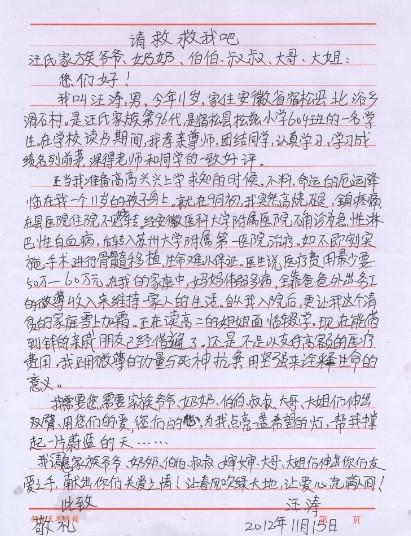 请救救我吧
汪氏家族爷爷、奶奶、伯伯、叔叔、大哥、大姐:
您们好!
我叫汪涛,男,今年11岁,家住安徽省宿松县北浴乡
滑石村。是汪氏家族第96代,是宿松县松兹小学604班的一名学
生。在学校读书期间,我孝亲尊师,团结同学,认真学习,学习成
绩名列前茅,深得老师和同学的一致好评。
正当我准备高高兴兴上学求知的时候,不料,命运的厄运降
临在我一个11岁的孩子身上。就在9月初,我突然高烧不退,全身疼痛,
在县医院住院不见好转。经安徽医科大学附属医院确诊为急性淋
巴性白血病,后转入苏州大学附属第一医院治疗。如不即刻实
施手术进行骨髓移植,生命难以保证。医生说医疗费用最少要
50万—60万元。在我的家庭中,妈妈体弱多病,全靠爸爸外出务工
的微薄收入来维持一家人的生活。自从我入院后,更让我这个清
贫的家庭雪上加霜。正在读高二的姐姐面临辍学。现在能借
到钱的亲戚朋友已经借遍了。还是不足以支付高额的医疗
费用。我正用微薄的力量与死神抗衡,用坚强来诠释生命的
意义。
我需要您,需要家族爷爷、奶奶、伯伯、叔叔、大哥、大姐们伸出
双臂,用您们的爱,您们的 为我点亮一盏希望的灯,帮我撑
起一片蔚蓝的天……
我请家族爷爷、奶奶、伯伯、叔叔、婶婶、大哥、大姐们伸出你们友
爱之手,献出你们关爱之情!让春风吹绿大地,让爱心充满人间!
此致 汪涛
敬礼 2012年11月15日
第 页